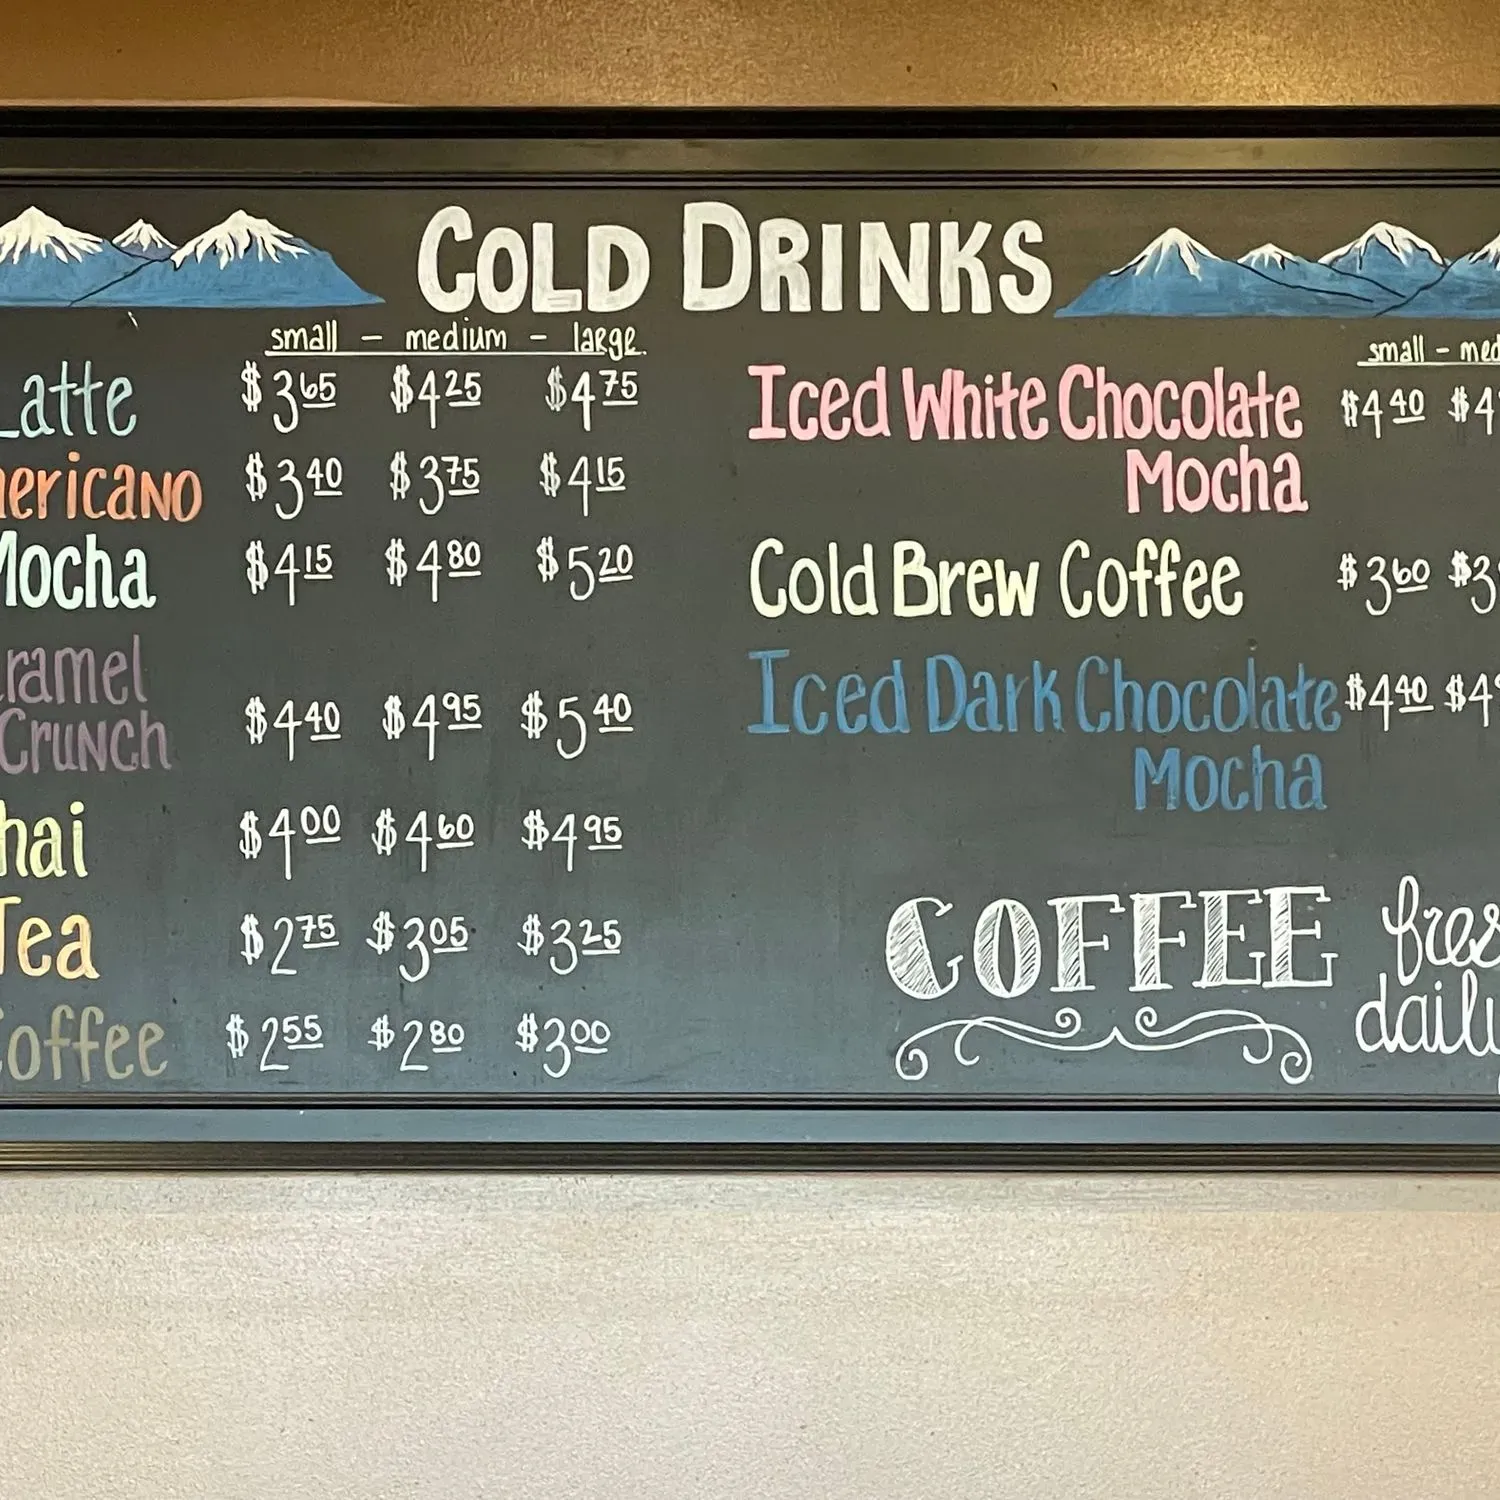 COLD DRINKS
small - medium - large
Latte $3.65 $4.25 $4.75
ericano $3.40 $3.75 $4.15
Mocha $4.15 $4.80 $5.20
ramel
Crunch $4.40 $4.95 $5.40
hai $4.00 $4.60 $4.95
Tea $2.75 $3.05 $3.25
offee $2.55 $2.80 $3.00
small - med
Iced White Chocolate $4.40 $4
Mocha
Cold Brew Coffee $3.60 $3
Iced Dark Chocolate $4.40 $4
Mocha
COFFEE
fres
daily